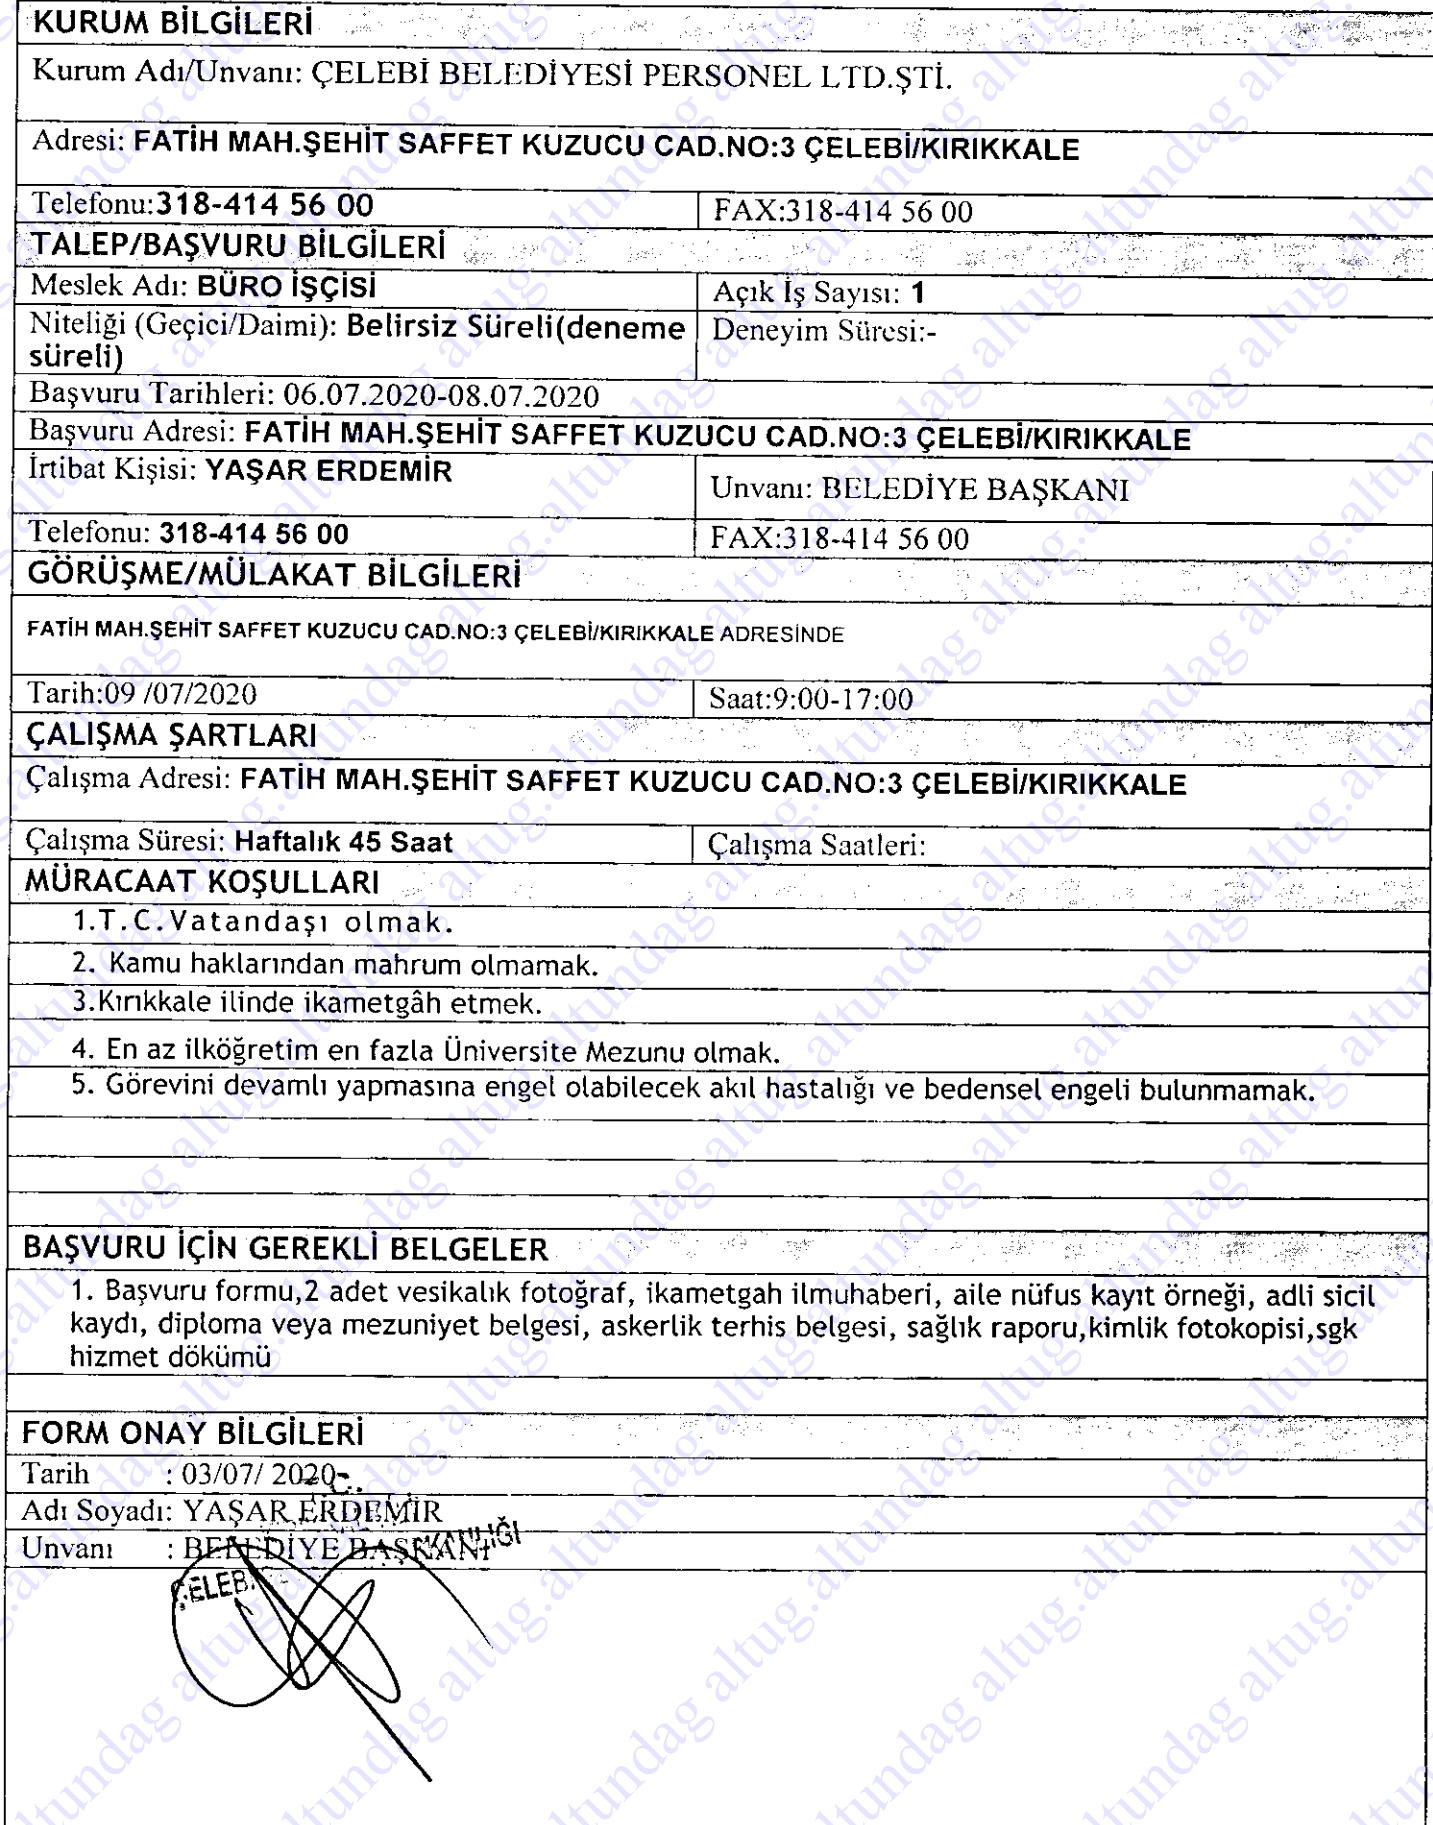 KURUM BİLGİLERİ
Kurum Adı/Unvanı: ÇELEBİ BELEDİYESİ PERSONEL LTD.ŞTİ.
Adresi: FATİH MAH.ŞEHİT SAFFET KUZUCU CAD.NO:3 ÇELEBİ/KIRIKKALE
Telefonu:318-414 56 00 FAX:318-414 56 00
TALEP/BAŞVURU BİLGİLERİ
Meslek Adı: BÜRO İŞÇİSİ Açık İş Sayısı: 1
Niteliği (Geçici/Daimi): Belirsiz Süreli(deneme Deneyim Süresi:-
süreli)
Başvuru Tarihleri: 06.07.2020-08.07.2020
Başvuru Adresi: FATİH MAH.ŞEHİT SAFFET KUZUCU CAD.NO:3 ÇELEBİ/KIRIKKALE
İrtibat Kişisi: YAŞAR ERDEMİR Unvanı: BELEDİYE BAŞKANI
Telefonu: 318-414 56 00 FAX:318-414 56 00
GÖRÜŞME/MÜLAKAT BİLGİLERİ
FATİH MAH.ŞEHİT SAFFET KUZUCU CAD.NO:3 ÇELEBİ/KIRIKKALE ADRESİNDE
Tarih:09 /07/2020 Saat:9:00-17:00
ÇALIŞMA ŞARTLARI
Çalışma Adresi: FATİH MAH.ŞEHİT SAFFET KUZUCU CAD.NO:3 ÇELEBİ/KIRIKKALE
Çalışma Süresi: Haftalık 45 Saat Çalışma Saatleri:
MÜRACAAT KOŞULLARI
1.T.C.Vatandaşı olmak.
2. Kamu haklarından mahrum olmamak.
3.Kırıkkale ilinde ikametgâh etmek.
4. En az ilköğretim en fazla Üniversite Mezunu olmak.
5. Görevini devamlı yapmasına engel olabilecek akıl hastalığı ve bedensel engeli bulunmamak.
BAŞVURU İÇİN GEREKLİ BELGELER
1. Başvuru formu,2 adet vesikalık fotoğraf, ikametgah ilmuhaberi, aile nüfus kayıt örneği, adli sicil
kaydı, diploma veya mezuniyet belgesi, askerlik terhis belgesi, sağlık raporu,kimlik fotokopisi,sgk
hizmet dökümü
FORM ONAY BİLGİLERİ
Tarih : 03/07/ 2020
Adı Soyadı: YAŞAR ERDEMİR
Unvanı : BELEDİYE BAŞKANI
altug.altundag